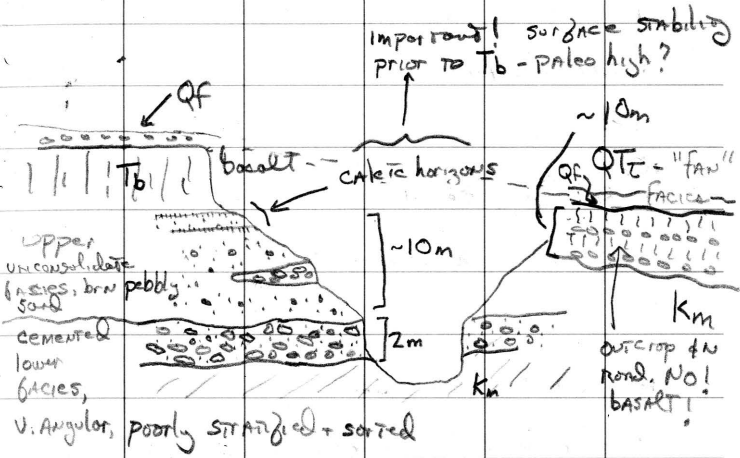 Important! surface stability
prior to Tb - paleo high?
Qf
~10m
Tb
basalt
calcic horizons
Qf
QTc - "FAN"
FACIES
upper
unconsolidate
facies, brn pebbly
sand
~10m
cemented
lower
facies,
V. Angular, poorly stratified + sorted
2m
Km
Km
outcrop on
road. NO!
basalt!